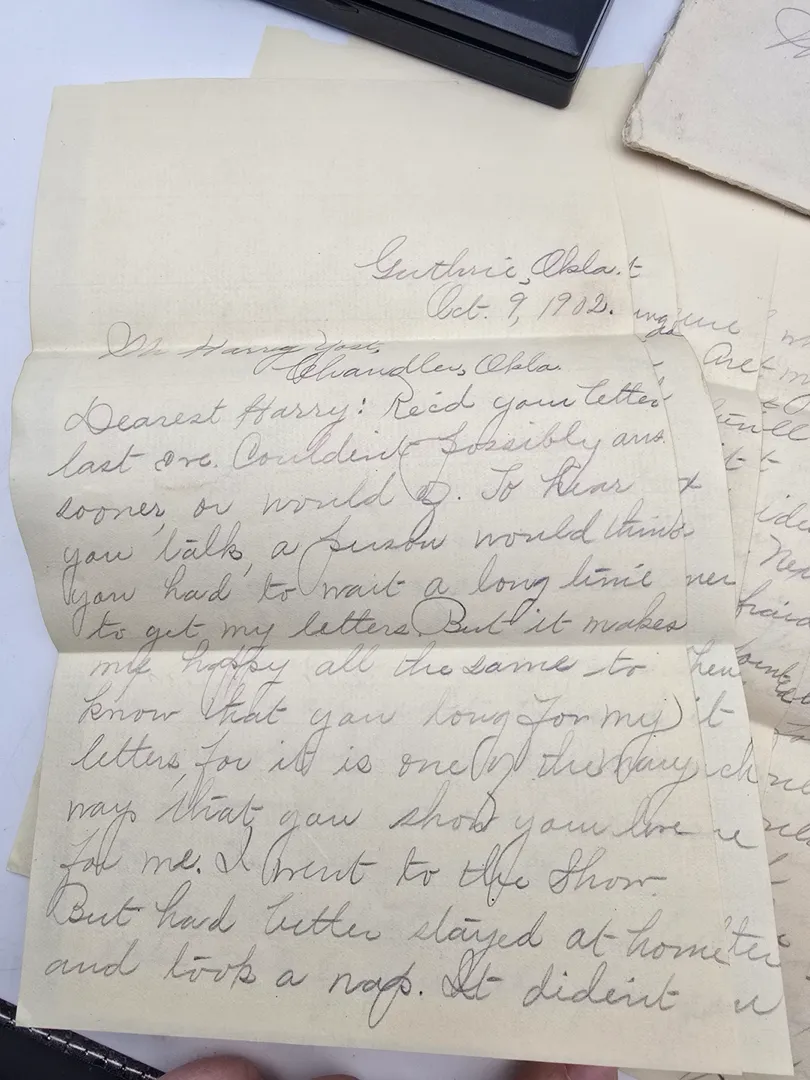 Guthrie, Okla.
Oct. 9, 1902.
Mr Harry Yost,
Chandler, Okla.
Dearest Harry: Rec'd your letter
last eve. Couldent possibly ans.
sooner, or would of. To hear
you talk, a person would think
you had to wait a long time
to get my letters. But it makes
me happy all the same to
know that you long for my
letters, for it is one of the many
ways that you show your love
for me. I went to the Show.
But had better stayed at home
and took a nap. It dident